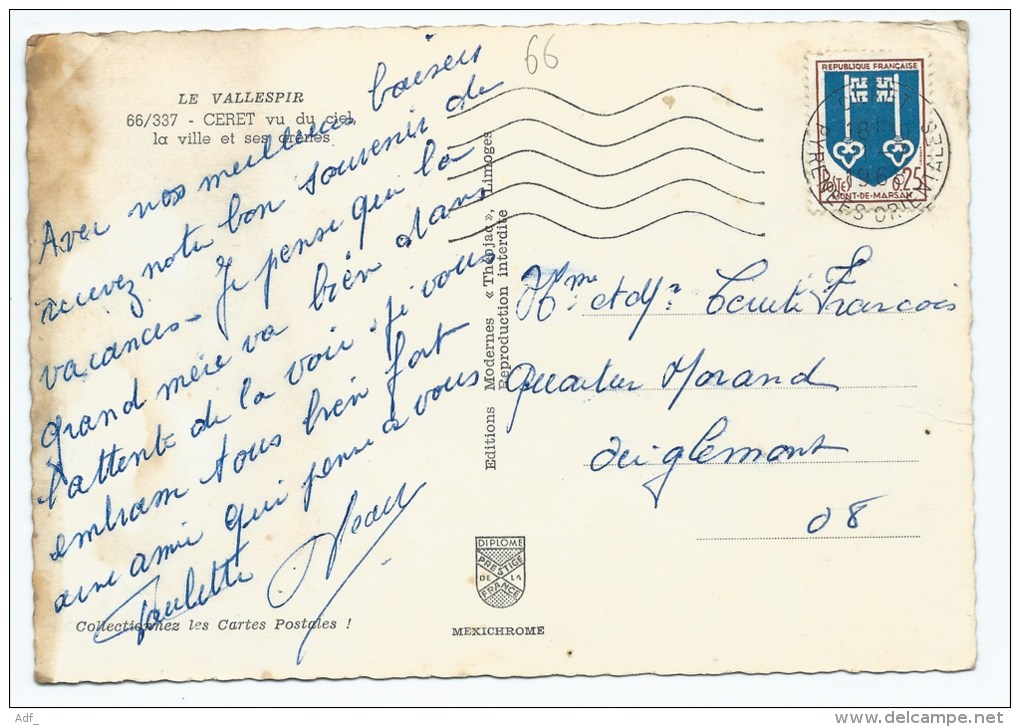 66
LE VALLESPIR
66/337 - CERET vu du ciel
la ville et ses arènes
Avec nos meilleurs baisers
recevez notre bon souvenir de
vacances - Je pense que la
grand mère va bien dans
l'attente de la voir. Je vous
embrasse tous bien fort
une amie qui pense à vous
Paulette Jean
Collectionnez les Cartes Postales !
Editions Modernes « Théojac », Limoges
Reproduction interdite
DIPLOME
PRESTIGE
DE LA
FRANCE
MEXICHROME
REPUBLIQUE FRANÇAISE
POSTES 0,25
MONT-DE-MARSAN
18
196
PYRENEES ORIENTALES
Mme et Mr François
Quartier Morand
Aiglemont
08
Adf_
delcampe.net